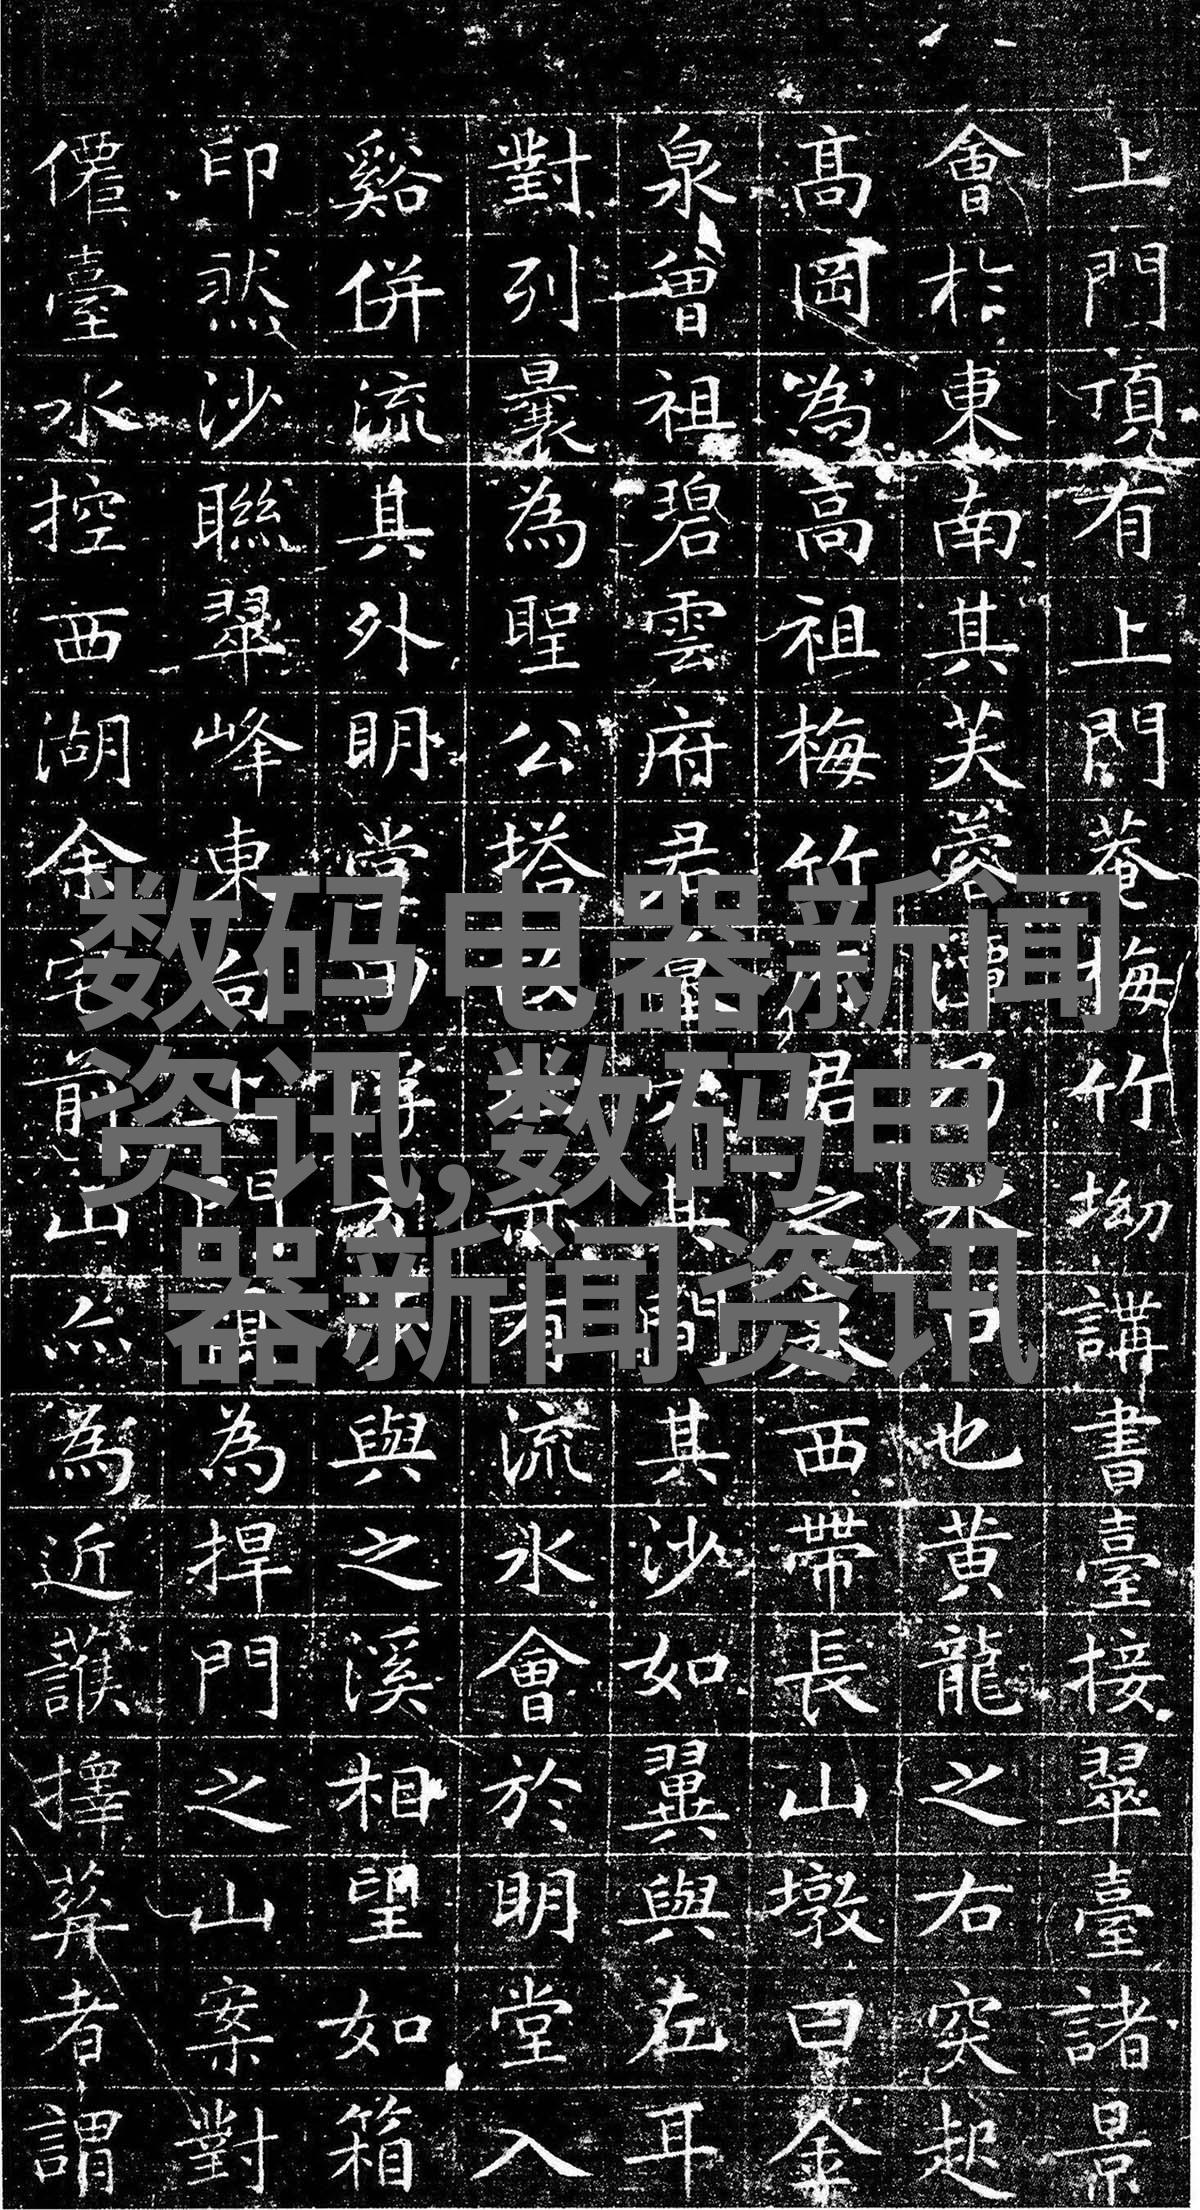 上門頂有上門菴梅竹坳講書臺接翠臺諸景
會於東南其芙蓉潭乃水口也黃龍之右突起
高岡為高祖梅竹府君之墓西帶長山墩曰金
泉曾祖碧雲府君墓其間其沙如翼與左耳
對列曩為聖公塔亦有流水會於明堂入
谿併流其外明堂與之溪相望如箱
印然沙聯翠峰東上門為捍門之山案對
僊臺水控西湖余宅前山亦為近護擇葬者謂
数码电器新闻
资讯,数码电
器新闻资讯